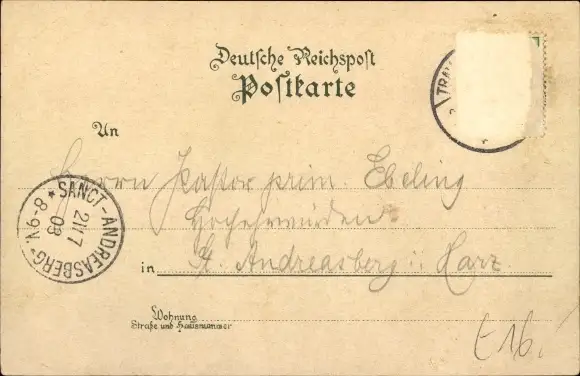 Deutsche Reichspost
Postkarte
TRAV
An
Herrn Pastor prim. Ebeling
Hochehrwürden
in St. Andreasberg i. Harz
SANCT-ANDREASBERG
21/7
03
8-9N.
Wohnung
Straße und Hausnummer
t16.